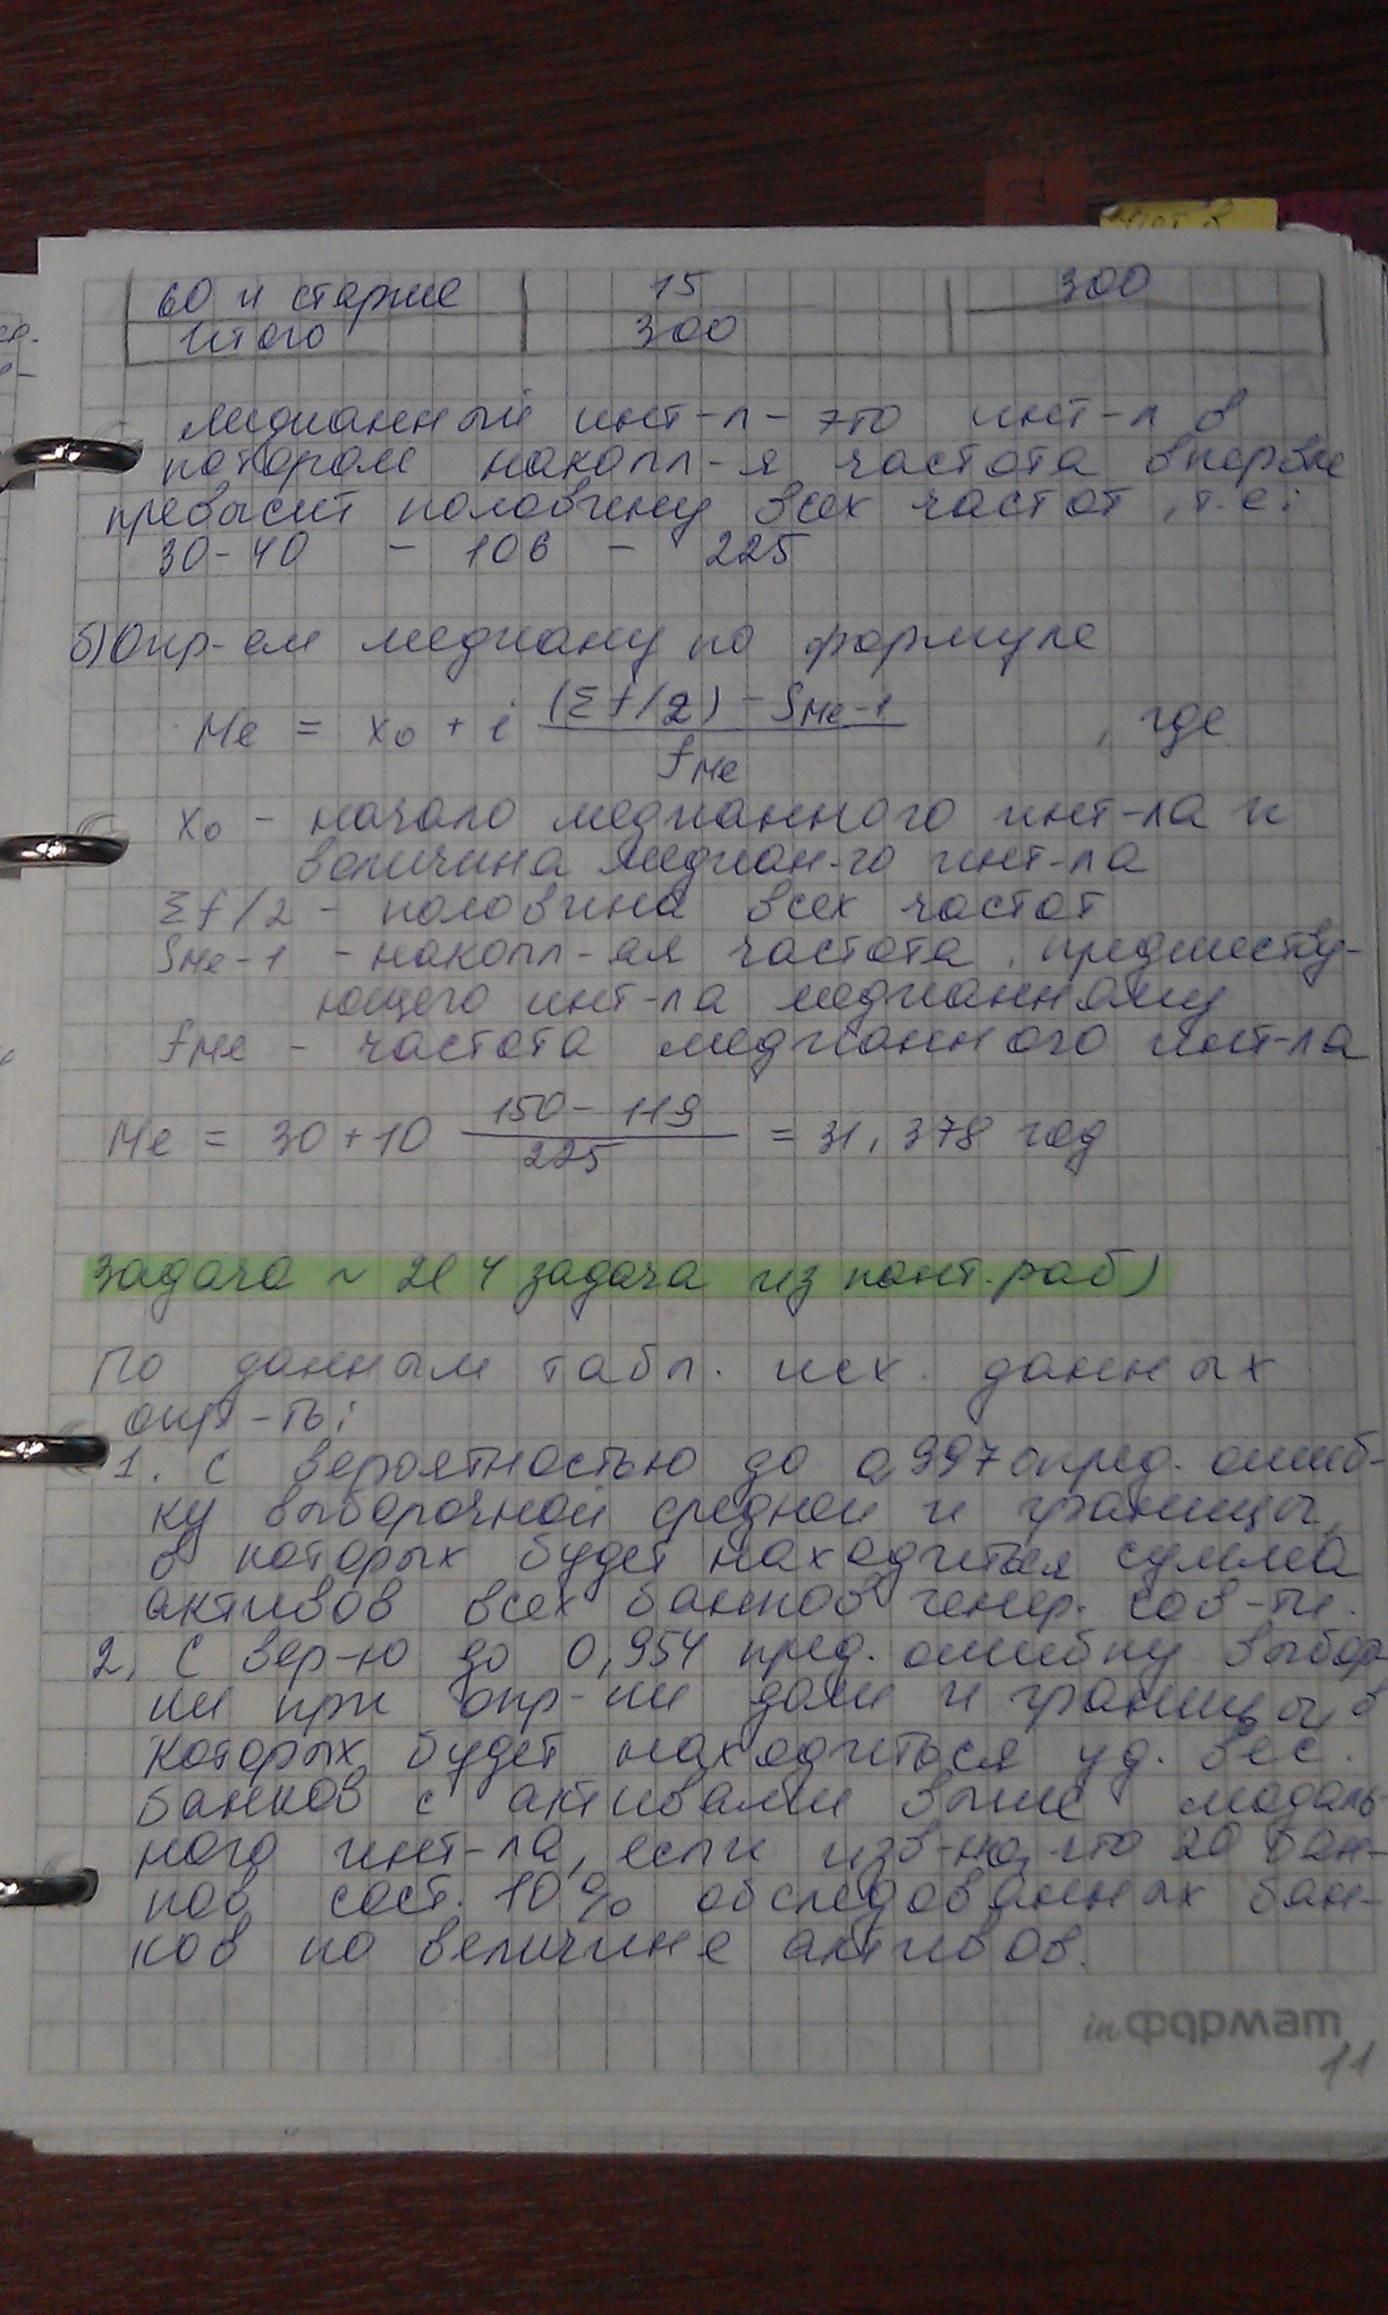 60 и старше 15 300
Итого 300
медианный инт-л - это инт-л в
котором накопл-я частота впервые
превысит половину всех частот, т.е:
30-40 - 106 - 225
б) Опр-ем медиану по формуле
Me = x₀ + i (Σf/2) - SMe-1 / fMe , где
x₀ - начало медианного инт-ла и
величина медиан-го инт-ла
Σf/2 - половина всех частот
SMe-1 - накопл-ая частота, предшеству-
ющего инт-ла медианному
fMe - частота медианного инт-ла
Me = 30+10 150-119 / 225 = 31,378 год
Задача ~ 2(4 задача из конт.раб)
По данным табл. исх. данных
опр-ть:
1. С вероятностью до 0,997 опред. ошиб-
ку выборочной средней и границы,
в которых будет находиться сумма
активов всех банков генер. сов-ти.
2. С вер-ю до 0,954 пред. ошибку выбор
ки при опр-ии доли и границы, в
которых будет находиться уд. вес.
банков с активами выше модаль-
ного инт-ла, если изв-но, что 20 бан-
ков сост. 10% обследованных бан-
ков по величине активов.
inФормат
11